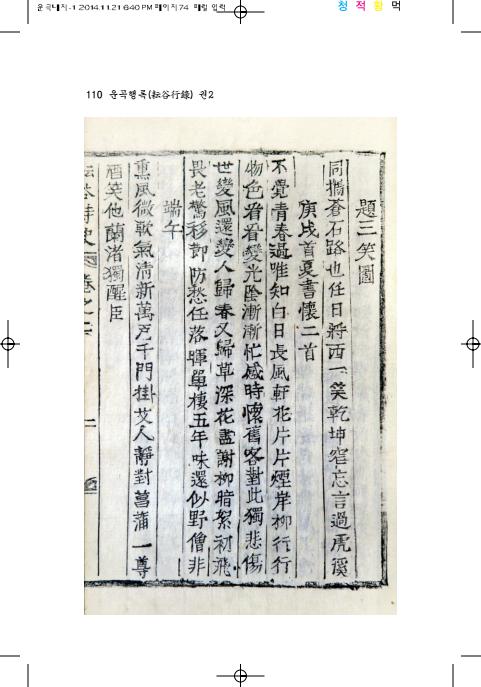 운곡내지-1 2014.11.21 6:40 PM 페이지74 매킬 입력
청 적 황 먹
110 운곡행록(耘谷行錄) 권2
題三笑圖
同携蒼石路也任日將西一笑乾坤窄忘言過虎溪
庚戌首夏書懷二首
不覺青春過唯知白日長風軒花片片煙岸柳行行
物色看看變光陰漸漸忙感時懷舊客對此獨悲傷
世變風還變人歸春又歸草深花盡謝柳暗絮初飛
畏老驚移節防愁任落暉單棲五年味還似野僧非
端午
熏風微軟氣清新萬戶千門掛艾人靜對菖蒲一尊
酒笑他蘭渚獨醒臣
耘谷詩史 卷之二